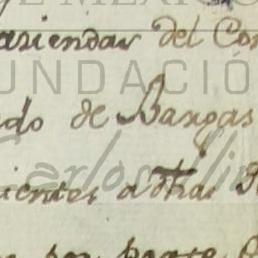 DE MEXICO
aziendas del Con
FUNDACIÓ
do de Bargas
Carlos Slim
cientes a otras
por parte